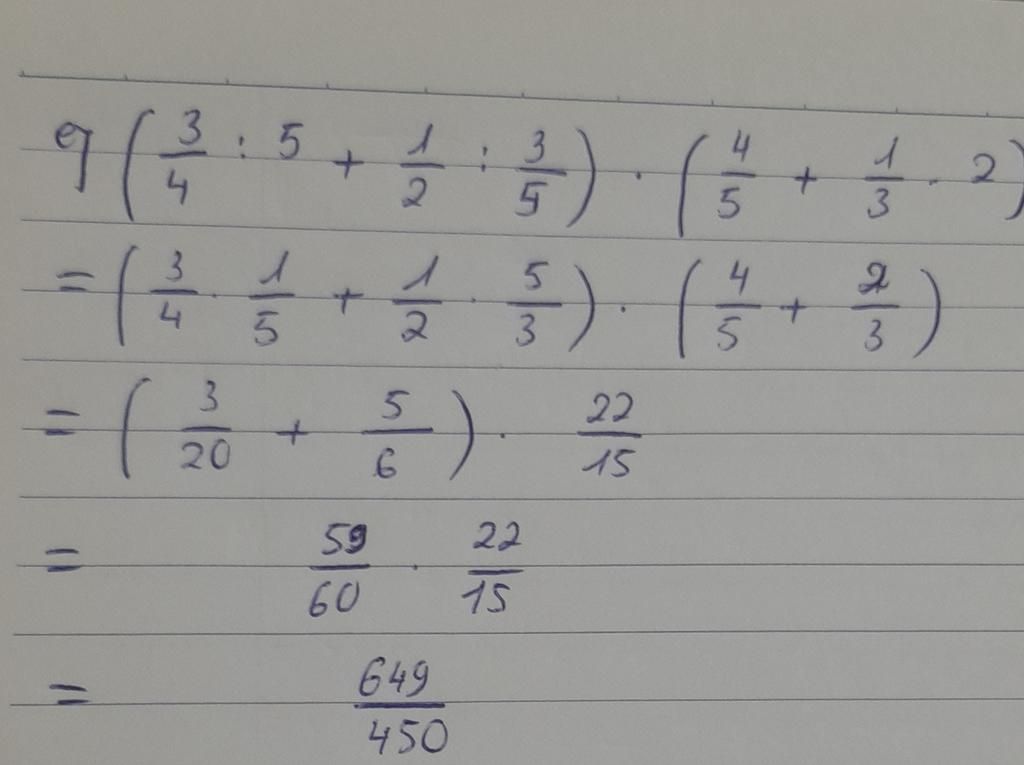 g) (3/4 : 5 + 1/2 : 3/5) · (4/5 + 1/3 · 2)
= (3/4 · 1/5 + 1/2 · 5/3) · (4/5 + 2/3)
= (3/20 + 5/6) · 22/15
= 59/60 · 22/15
= 649/450